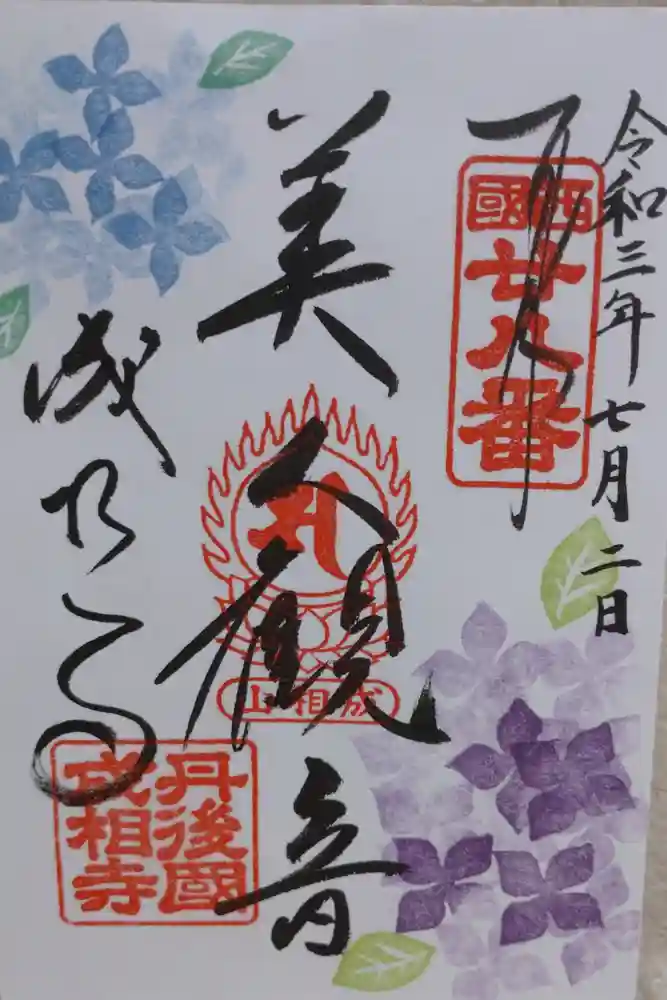 令和三年七月二日
奉拝
西國
廿八番
美人観音
成相山
成相寺
丹後國
成相寺